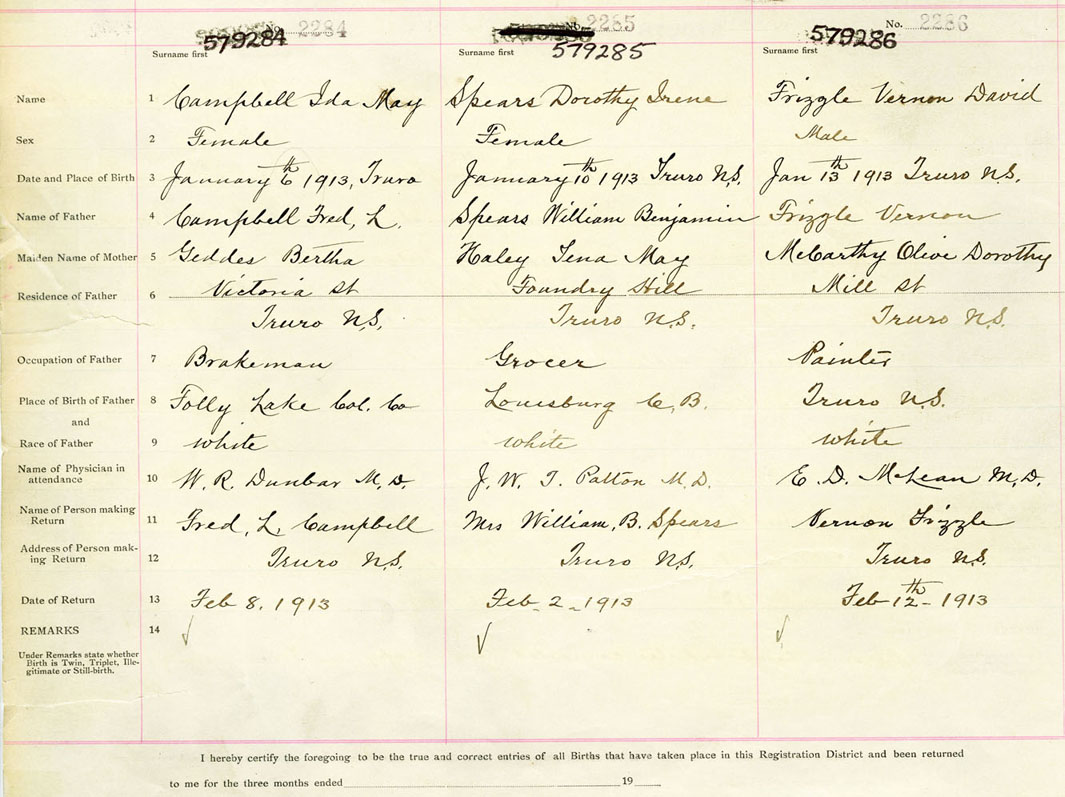 No. 2284 No. 2285 No. 2286
579284 579285 579286
Surname first Surname first Surname first
Name 1 Campbell Ida May Spears Dorothy Irene Frizgle Vernon David
Sex 2 Female Female Male
Date and Place of Birth 3 January 6th 1913, Truro January 10th 1913 Truro N.S. Jan 13th 1913 Truro N.S.
Name of Father 4 Campbell Fred, L. Spears William Benjamin Frizgle Vernon
Maiden Name of Mother 5 Geddes Bertha Haley Tena May McCarthy Olive Dorothy
Residence of Father 6 Victoria St Foundry Hill Mill St
Truro N.S. Truro N.S. Truro N.S.
Occupation of Father 7 Brakeman Grocer Painter
Place of Birth of Father 8 Folly Lake Col. Co Louisburg C.B. Truro N.S.
and
Race of Father 9 white white white
Name of Physician in
attendance 10 W. R. Dunbar M.D. J. W. T. Patton M.D. E. D. McLean M.D.
Name of Person making
Return 11 Fred, L. Campbell Mrs William, B. Spears Vernon Frizgle
Address of Person mak-
ing Return 12 Truro N.S. Truro N.S. Truro N.S.
Date of Return 13 Feb 8. 1913 Feb - 2 - 1913 Feb 12th - 1913
REMARKS 14
Under Remarks state whether
Birth is Twin, Triplet, Ille-
gitimate or Still-birth.
I hereby certify the foregoing to be the true and correct entries of all Births that have taken place in this Registration District and been returned
to me for the three months ended 19